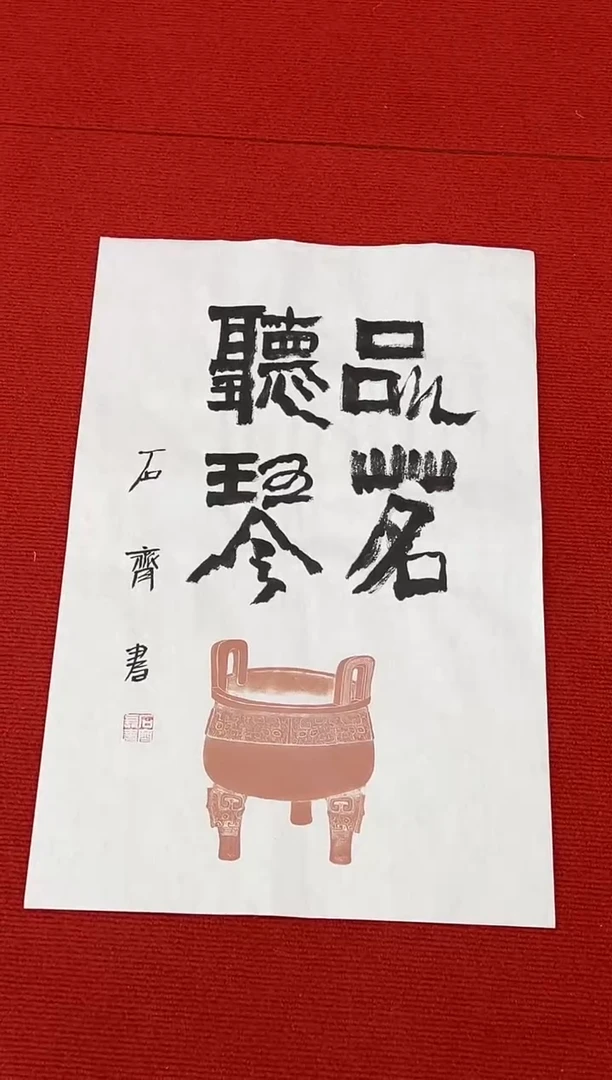 品茗
聽琴
石齊書